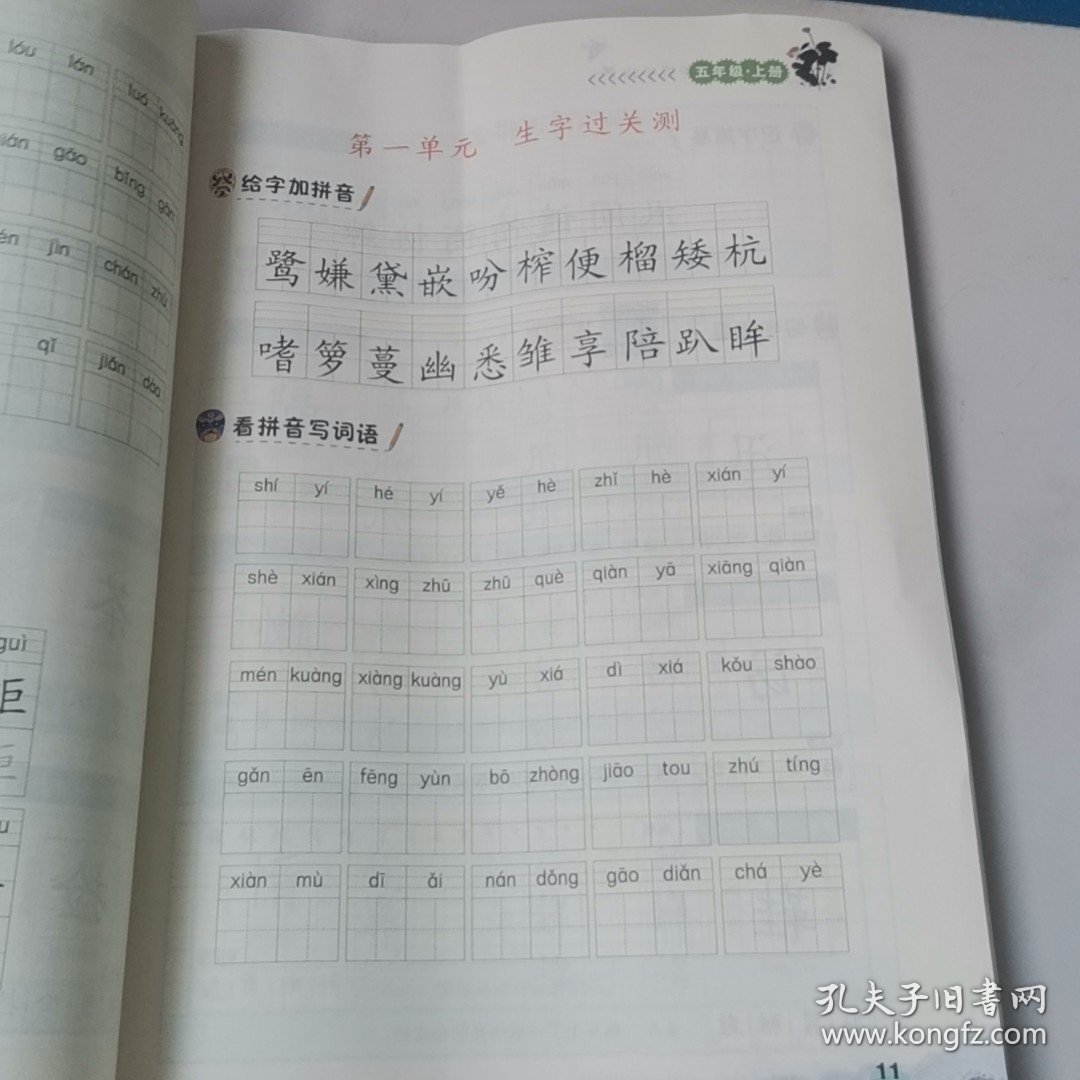 lóu lán
luó kuāng
gāo
bǐng gān
jìn
chán zhù
qī
jiǎn dāo
guì
五年级·上册
第一单元 生字过关测
给字加拼音
鹭 嫌 黛 嵌 吩 榨 便 榴 矮 杭
嗜 箩 蔓 幽 悉 雏 享 陪 趴 眸
看拼音写词语
shí yí hé yí yě hè zhǐ hè xián yí
shè xián xìng zhū zhū què qiàn yā xiāng qiàn
mén kuàng xiàng kuàng yù xiá dì xiá kǒu shào
gǎn ēn fēng yùn bō zhòng jiāo tou zhú tíng
xiàn mù dī ǎi nán dǒng gāo diǎn chá yè
11
孔夫子旧书网
www.kongfz.com